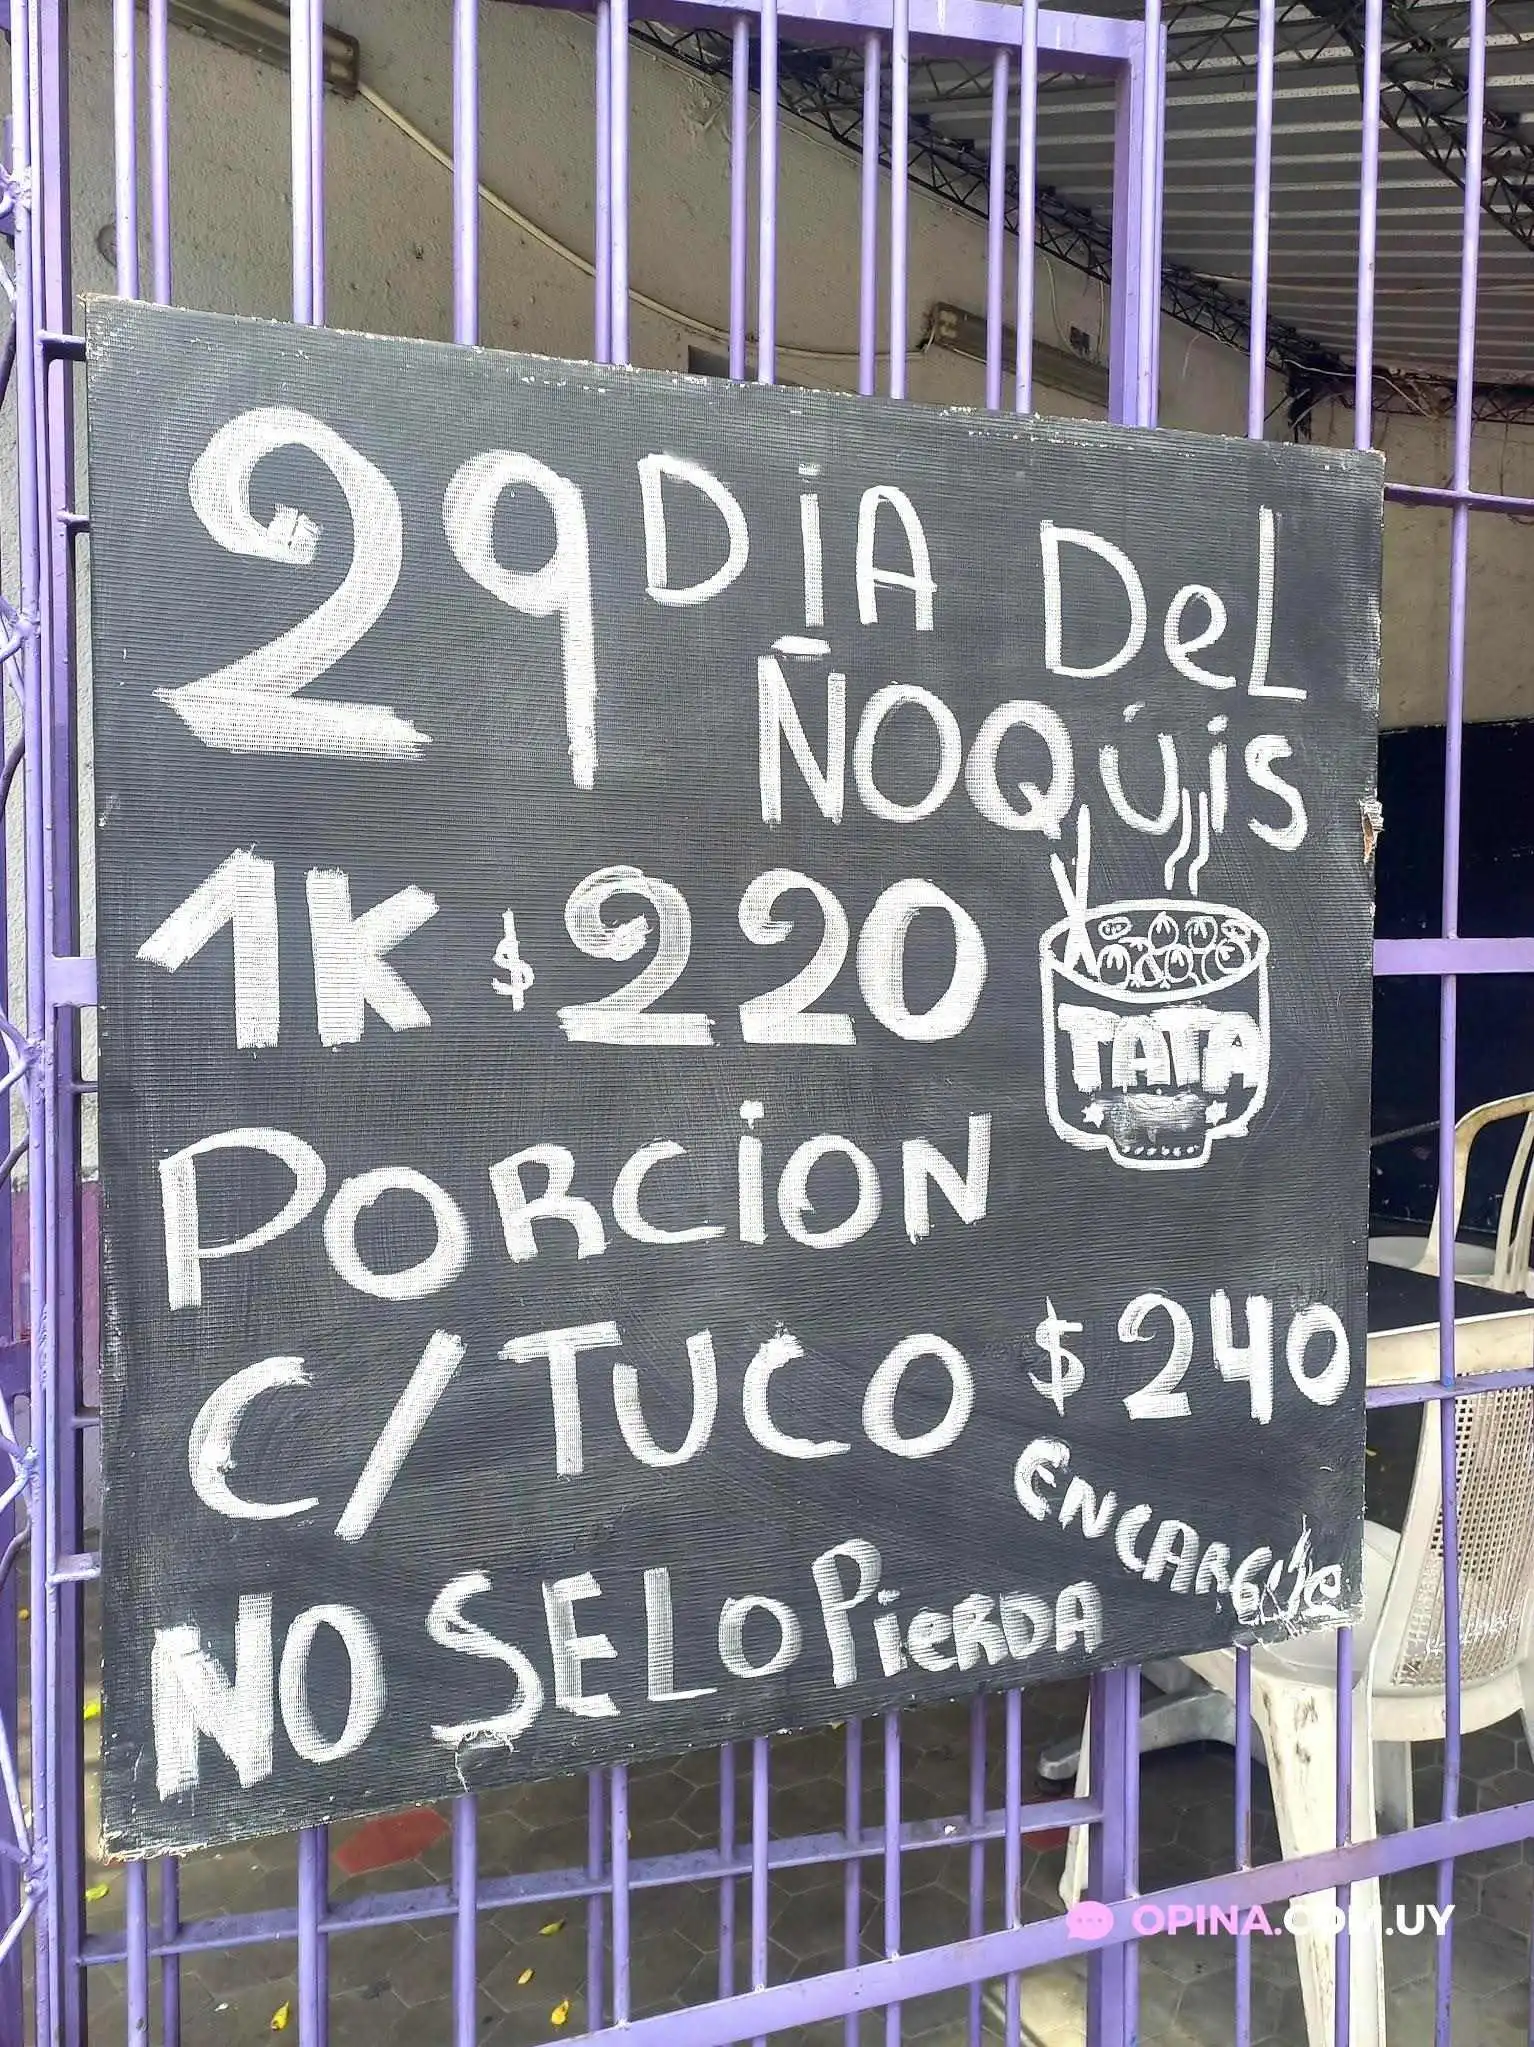 29 DíA DeL
ÑOQUiS
1K $220
TATA
PORCiON
C/TUCO $240
ENCARGUE
NO SE LO PiERDA
OPINA.COM.UY